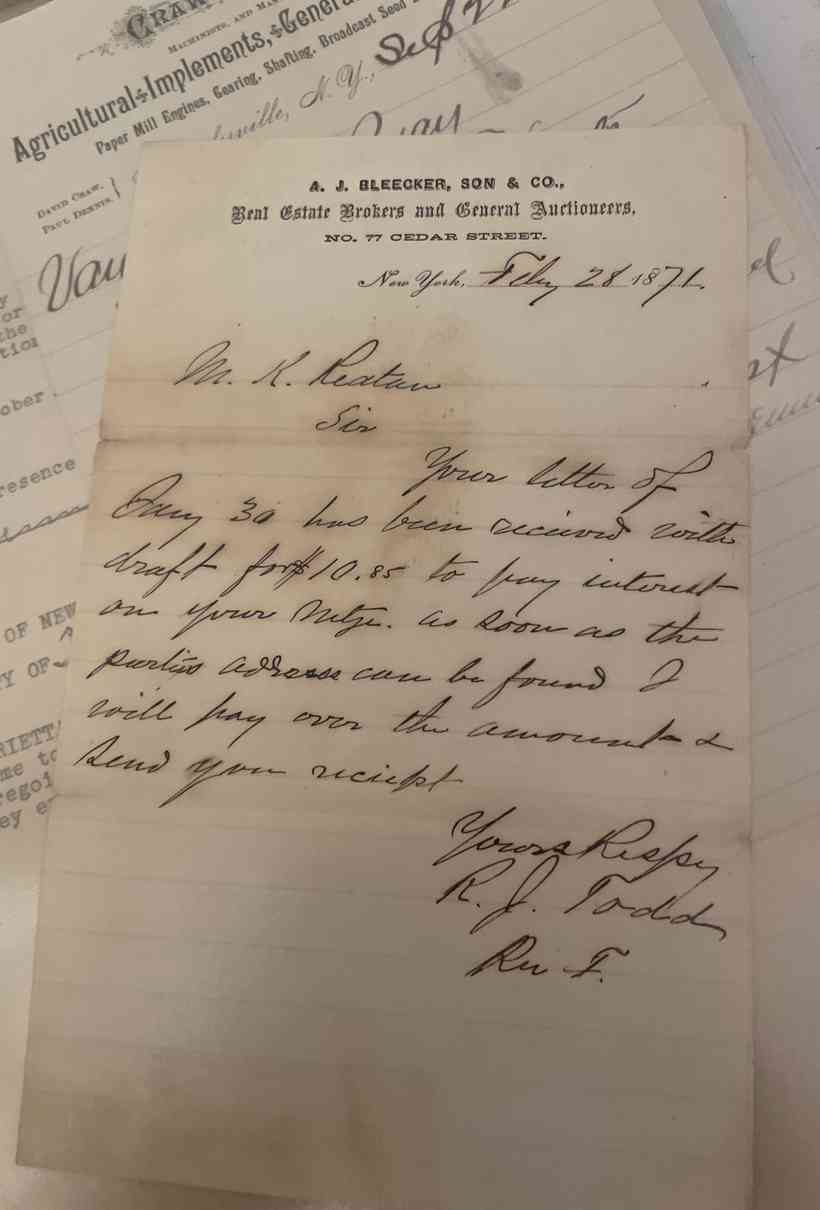 CRAW
MACHINISTS, AND MA
Agricultural Implements, & General
Paper Mill Engines, Gearing, Shafting, Broadcast Seed
ville, N. Y., Sep 2
DAVID CRAW,
PAUL DENNIS,
A. J. BLEECKER, SON & CO.,
Real Estate Brokers and General Auctioneers,
NO. 77 CEDAR STREET.
New York, Feby 28 1871.
M. K.
Sir
Your letter of
Jany 30 has been received with
draft for $10.85 to pay interest
on your Mtge. as soon as the
parties adress can be found I
will pay over the amount &
send you reciept
Yours Respy
R. J. Todd
or
the
tion
ober
resence
OF NEW
Y OF
RIETT
me to
regoi
ey e